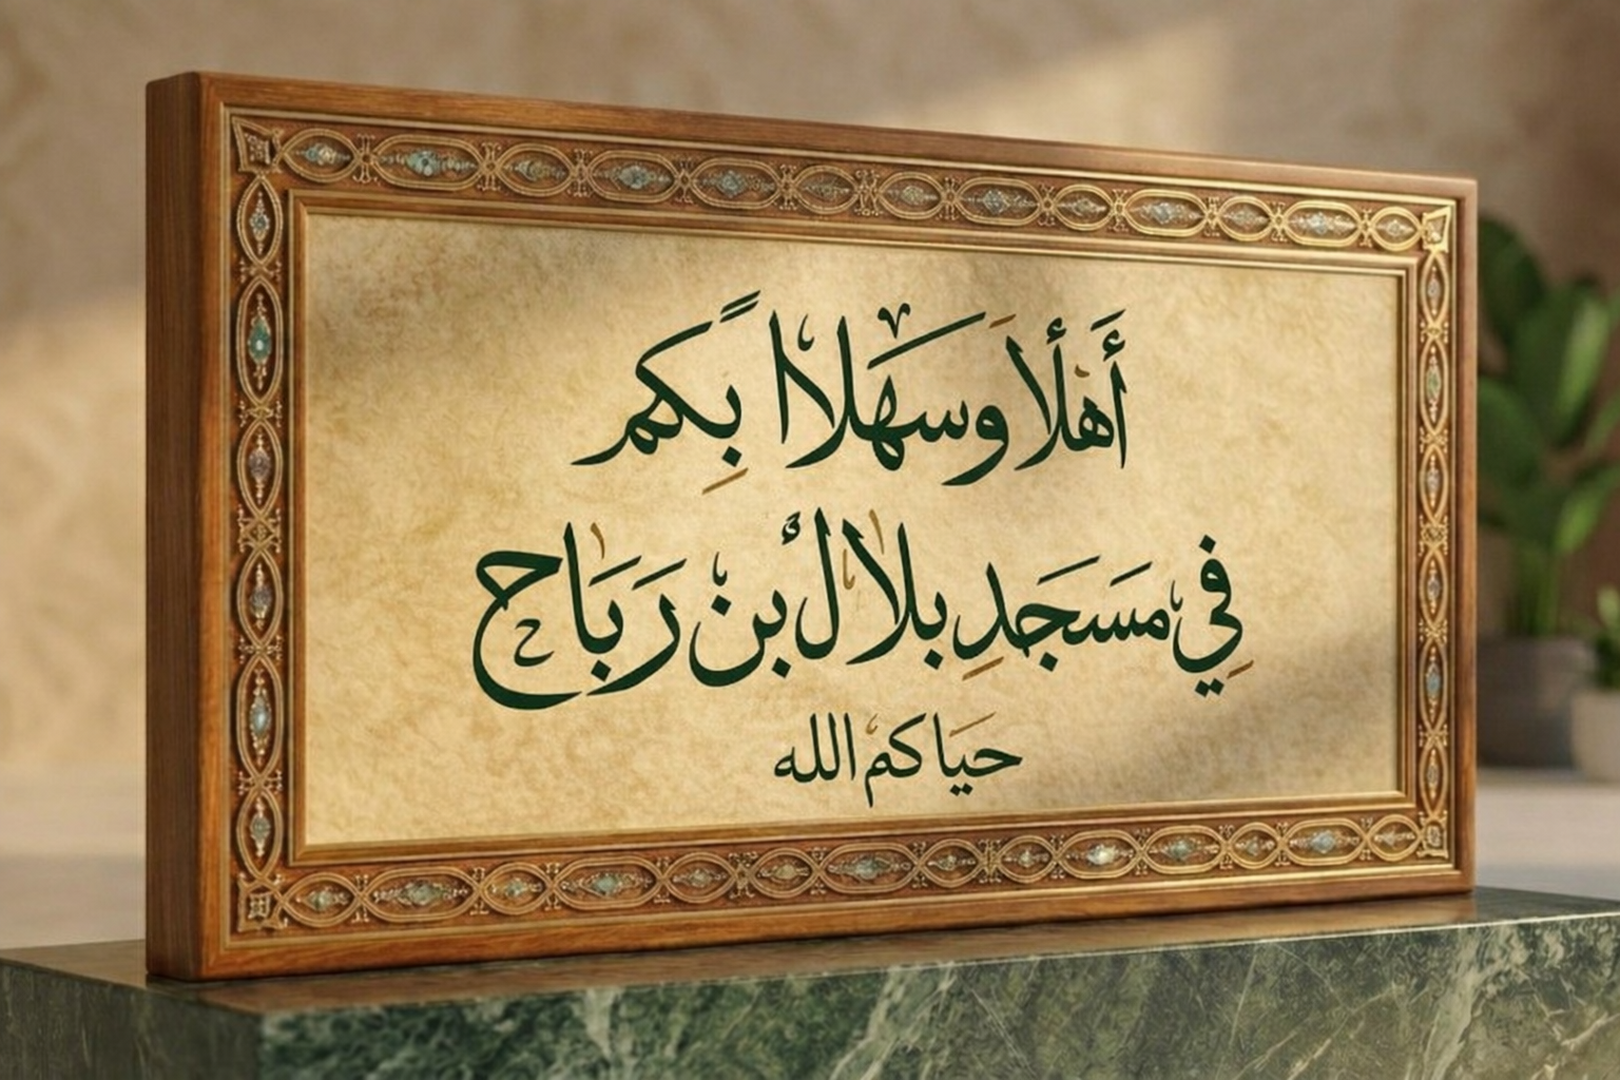 أَهلأَ وسَهْلاا بِكمً
في مسَجَدِ بلال بن رَبَاح
حيَاكم الله